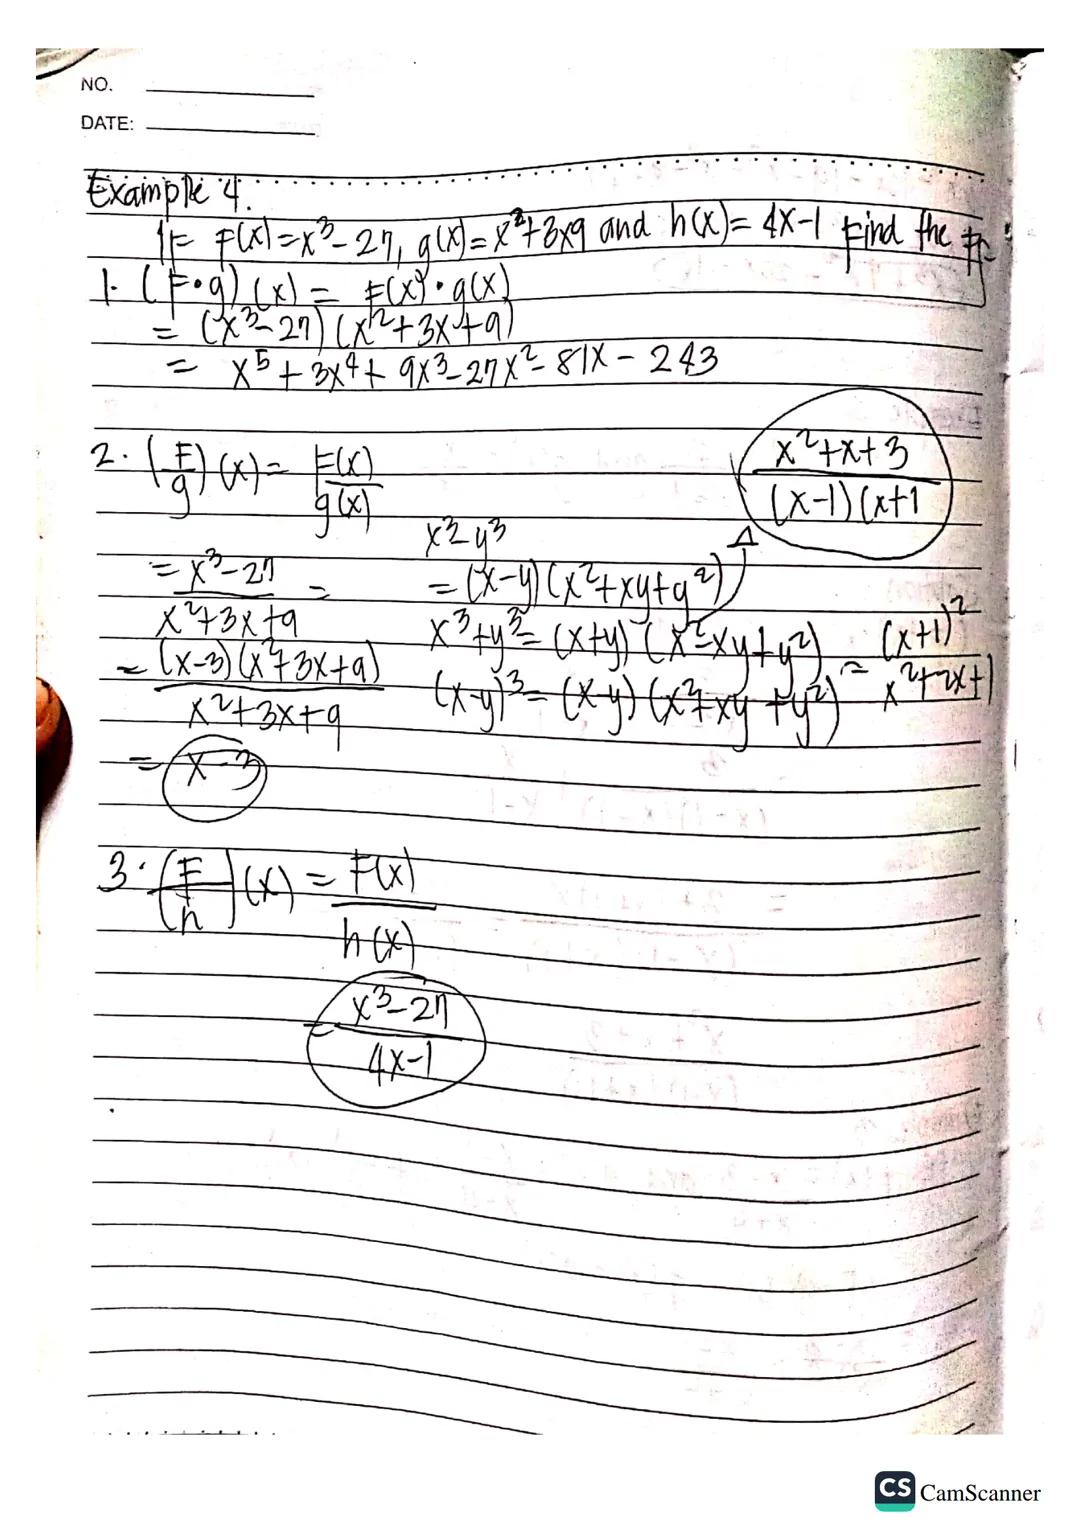 NO.
DATE:
Example 4.
IF F(x)=x³-27, g(x)=x²+3x9 and h(x)= 4x-1 Find the
1. (F•g)(x) = F(x)•g(x)
= (x³-27)(x²+3x+9)
= x⁵+3x⁴+9x³-27x²-81x-243
2. (F/g)(x)= F(x)/g(x)
x²+x+3/(x-1)(x+1
x³y³
= x³-27/x²+3x+9 =
= (x-y)(x²+xy+y²)
x³+y³=(x+y)(x²-xy+y²)
= (x-3)(x²+3x+9)/x²+3x+9
(x-y)³=(x-y)(x²+xy+y²) = (x+1)²/x²+2x+1
= x-3
3. (F/h)(x) = F(x)/h(x)
= x³-27/4x-1
CS CamScanner